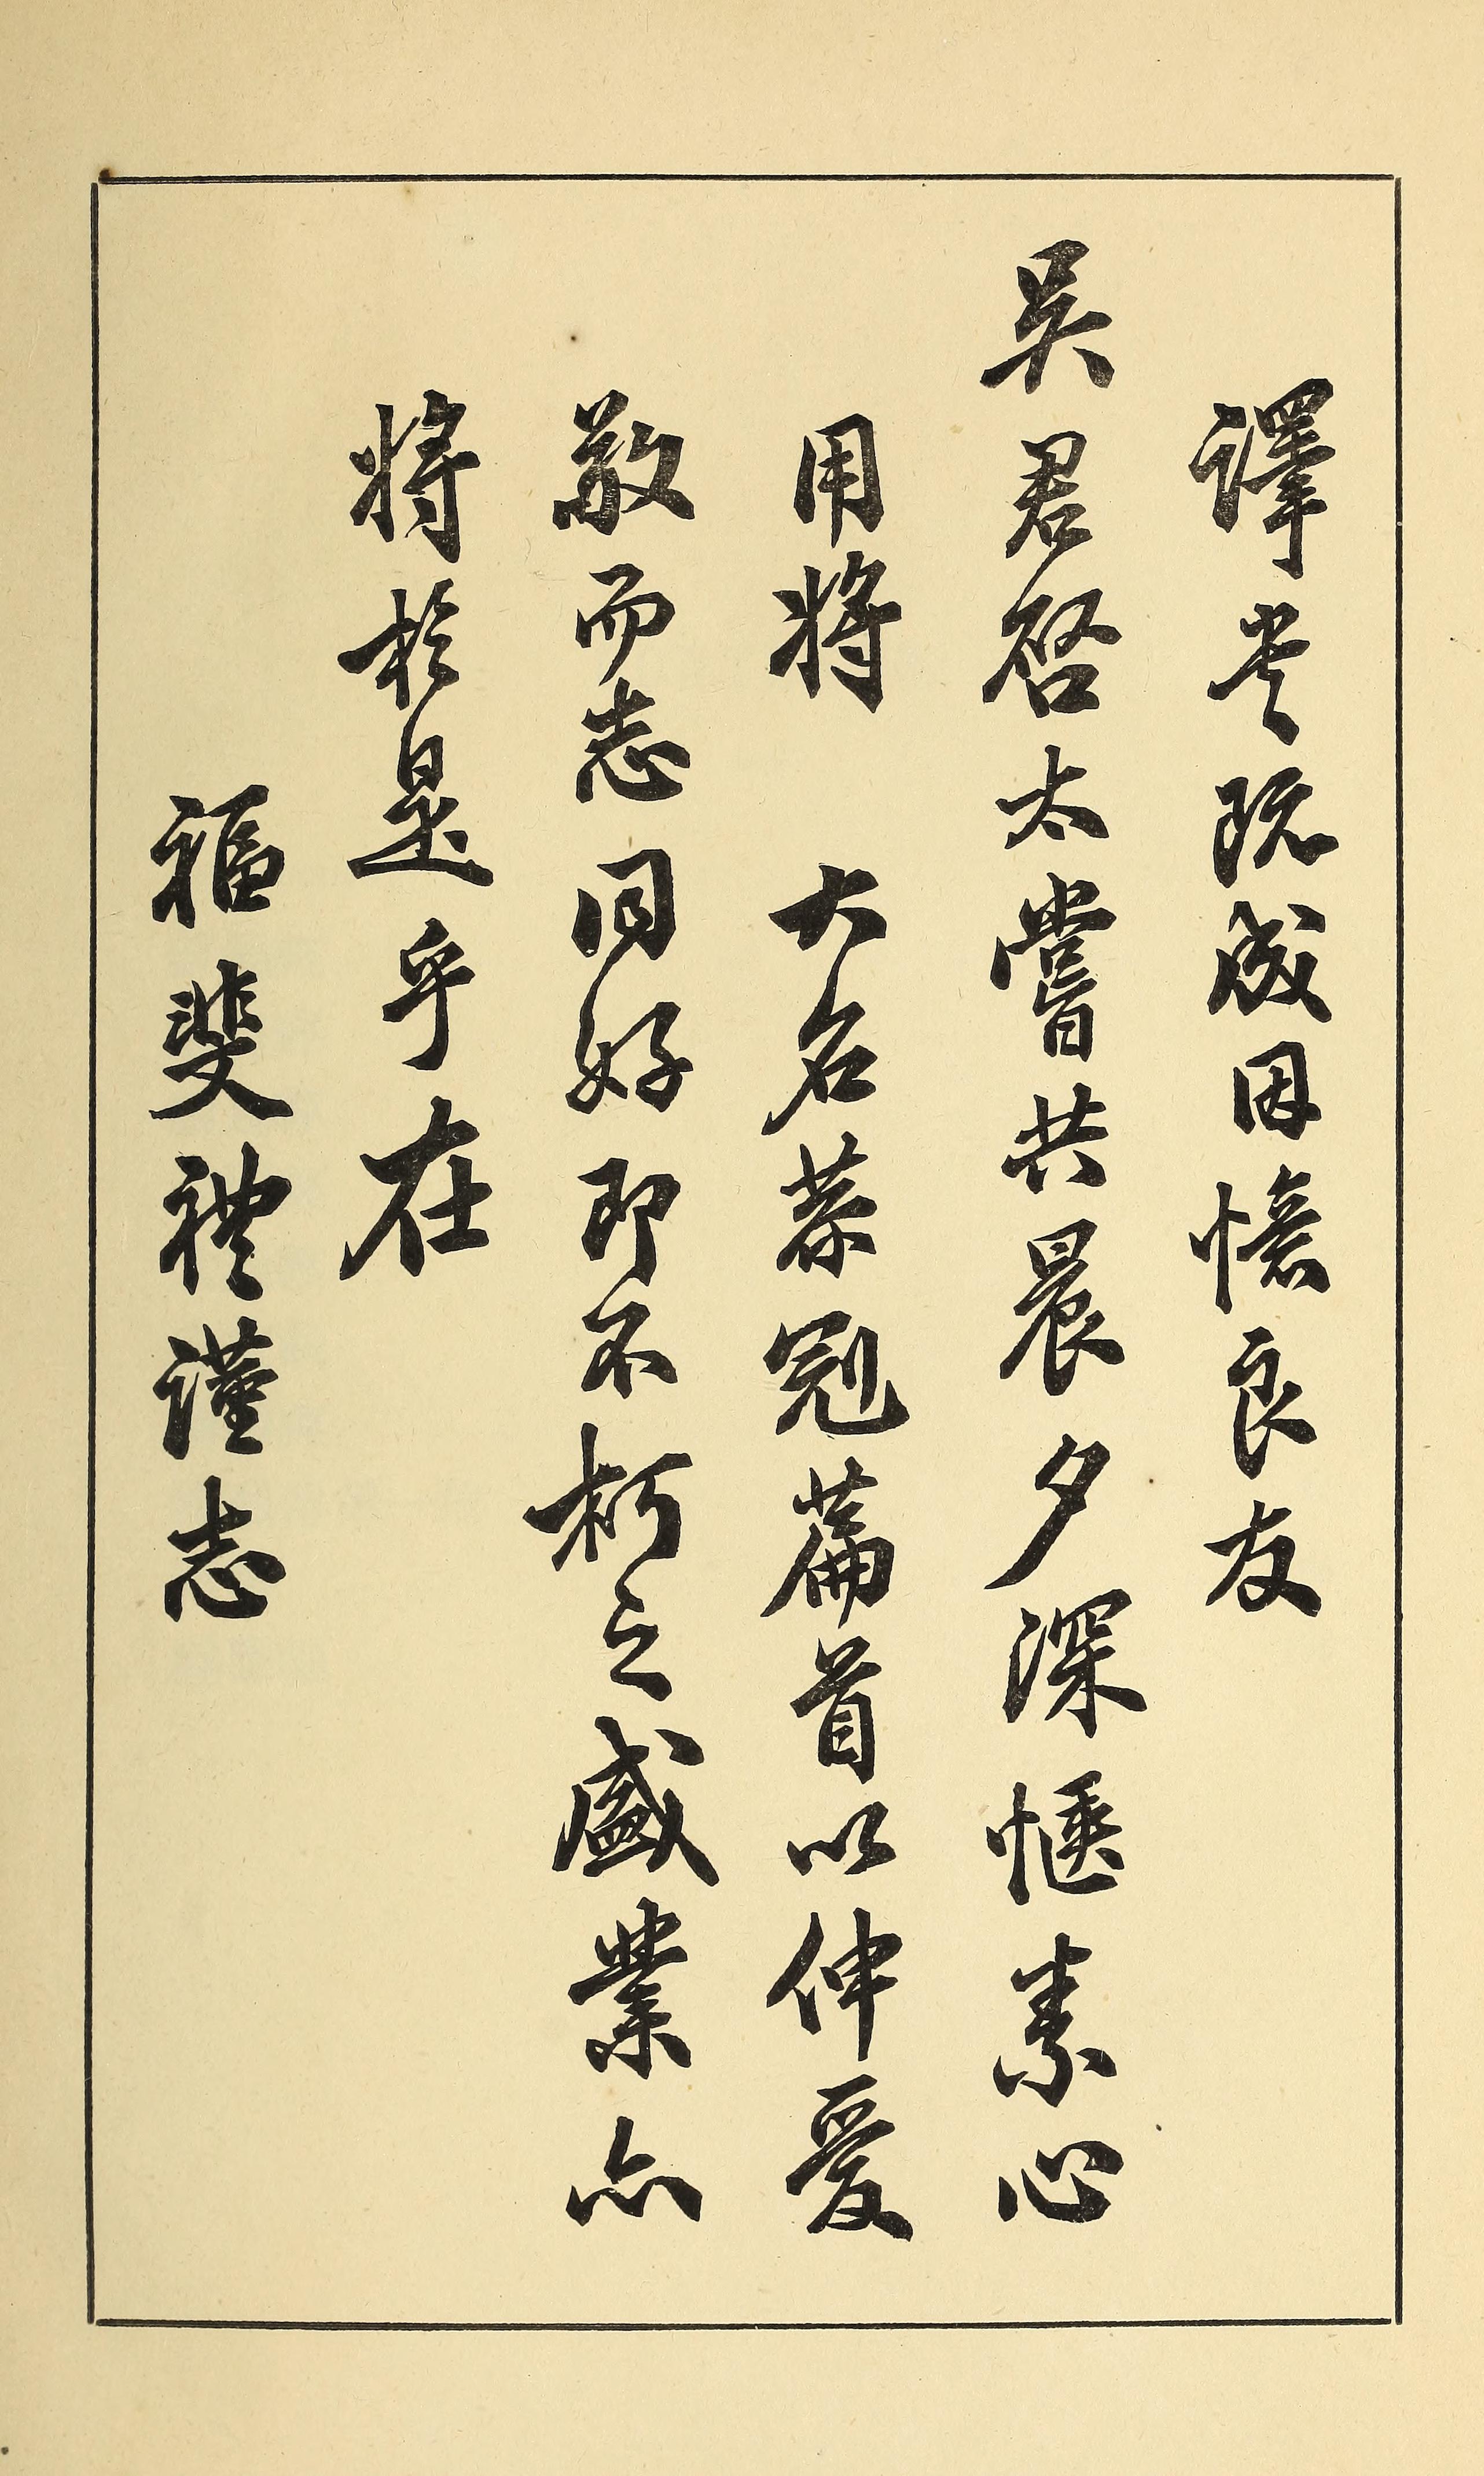 譯卷既成因憶良友
吳君啓太嘗共晨夕深愜素心
用將　大名恭冠篇首以伸愛
敬而志同好即不朽之盛業亦
將於是乎在
福斐禮謹志